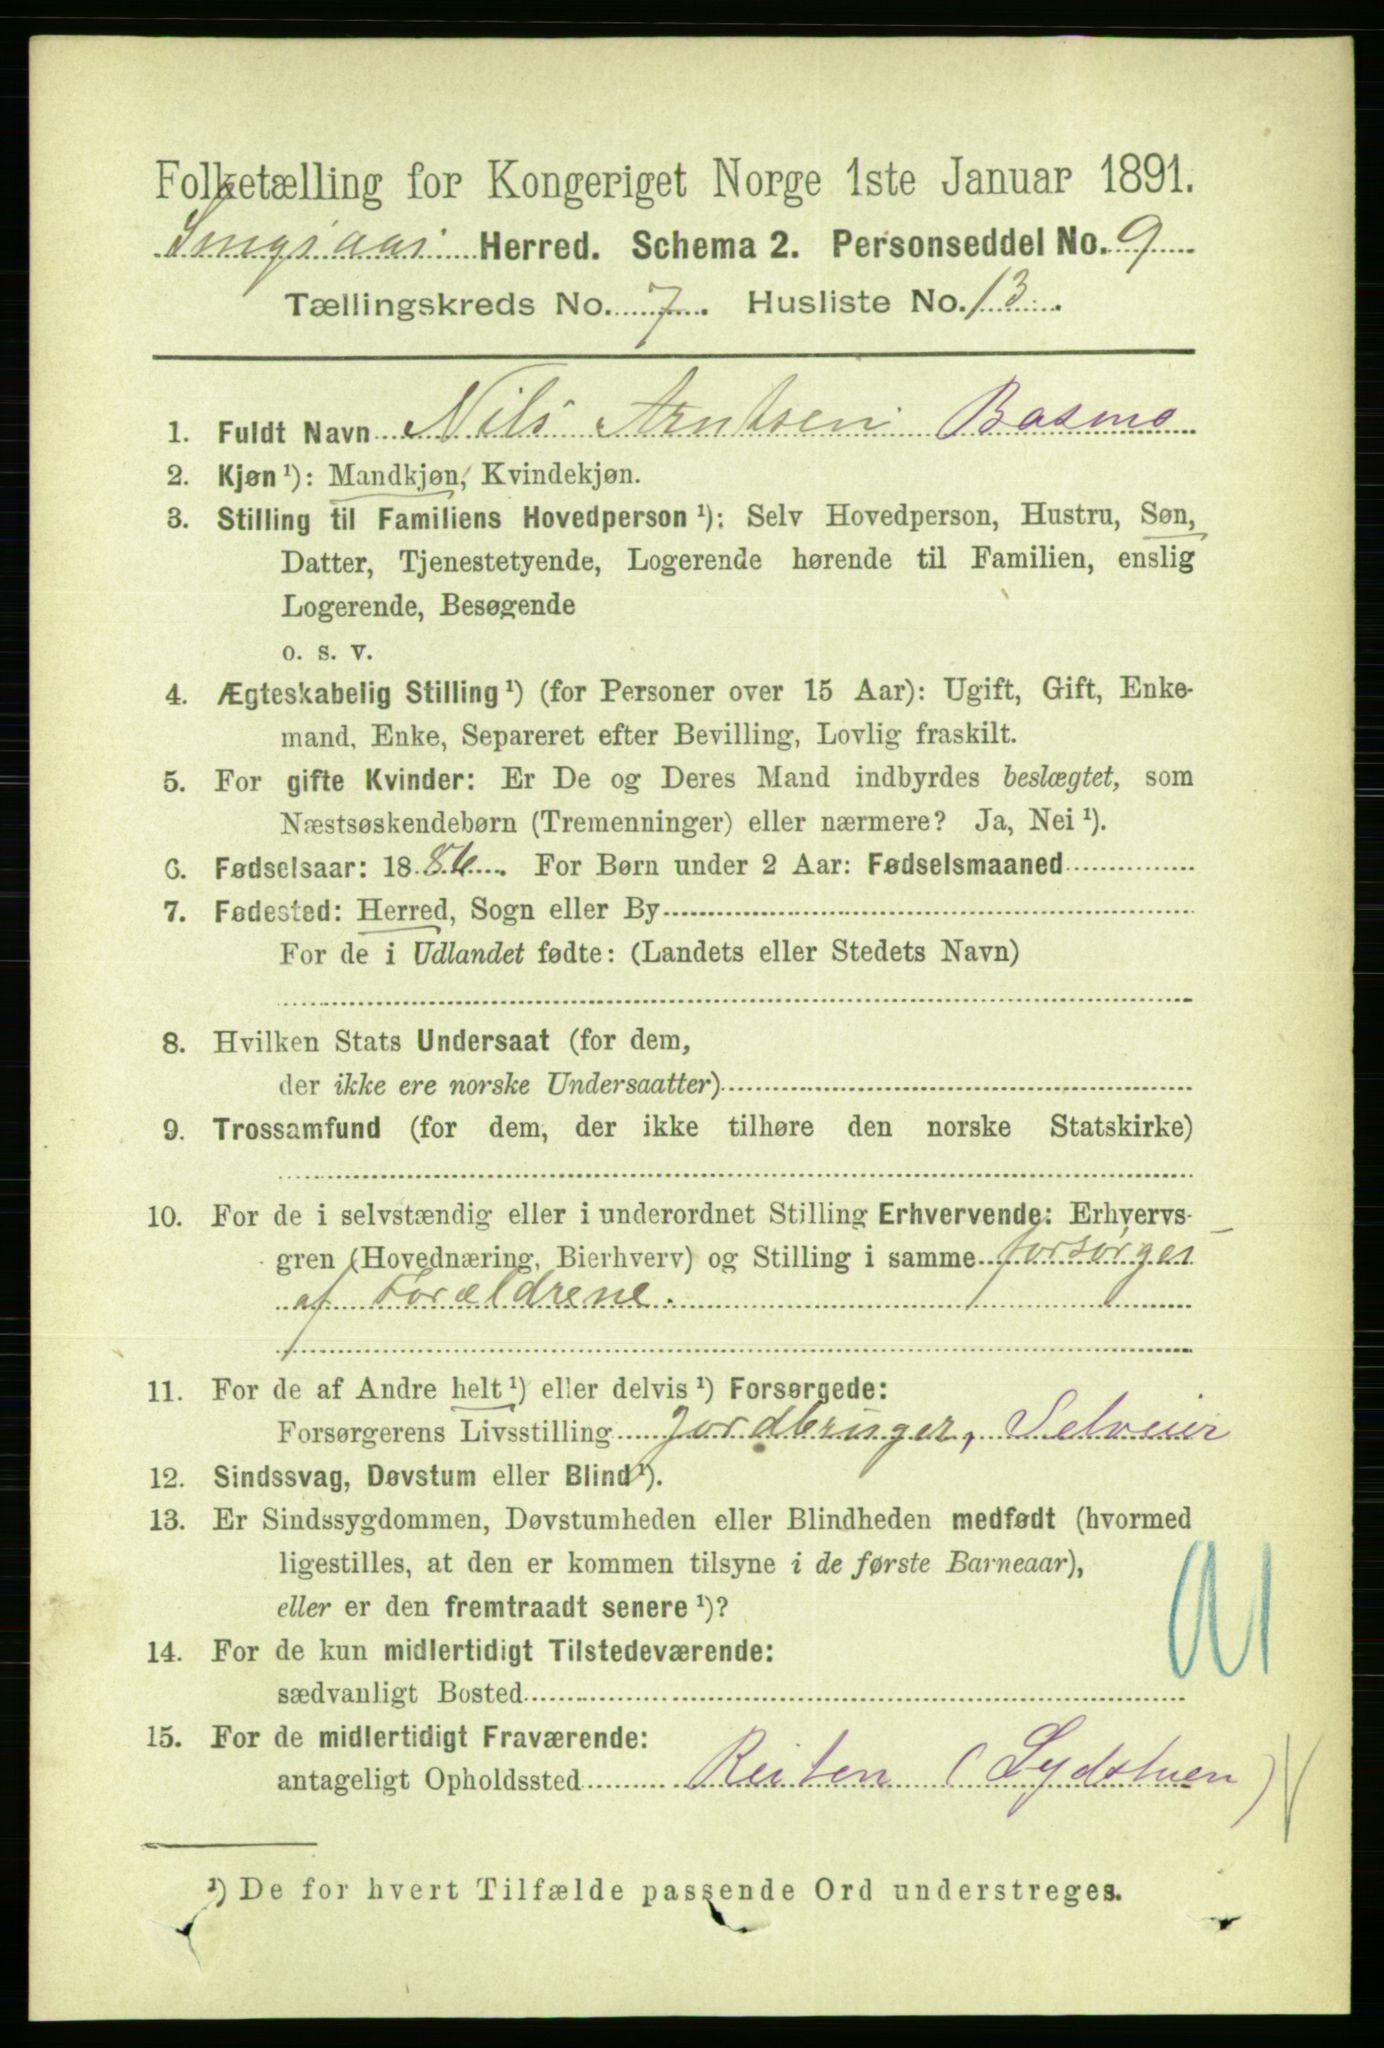 Folketælling for Kongeriget Norge 1ste Januar 1891.
Singsaas Herred. Schema 2. Personseddel No. 9
Tællingskreds No. 7. Husliste No. 13.
1. Fuldt Navn Nils Arntsen Basmo
2. Kjøn ¹): Mandkjøn, Kvindekjøn.
3. Stilling til Familiens Hovedperson ¹): Selv Hovedperson, Hustru, Søn,
Datter, Tjenestetyende, Logerende hørende til Familien, enslig
Logerende, Besøgende
o. s. v.
4. Ægteskabelig Stilling ¹) (for Personer over 15 Aar): Ugift, Gift, Enke-
mand, Enke, Separeret efter Bevilling, Lovlig fraskilt.
5. For gifte Kvinder: Er De og Deres Mand indbyrdes beslægtet, som
Næstsøskendebørn (Tremenninger) eller nærmere? Ja, Nei ¹).
6. Fødselsaar: 1886. For Børn under 2 Aar: Fødselsmaaned
7. Fødested: Herred, Sogn eller By
For de i Udlandet fødte: (Landets eller Stedets Navn)
8. Hvilken Stats Undersaat (for dem,
der ikke ere norske Undersaatter)
9. Trossamfund (for dem, der ikke tilhøre den norske Statskirke)
10. For de i selvstændig eller i underordnet Stilling Erhvervende: Erhvervs-
gren (Hovednæring, Bierhverv) og Stilling i samme forsørges
af Forældrene.
11. For de af Andre helt ¹) eller delvis ¹) Forsørgede:
Forsørgerens Livsstilling Jordbruger, Selveier
12. Sindssvag, Døvstum eller Blind ¹).
13. Er Sindssygdommen, Døvstumheden eller Blindheden medfødt (hvormed
ligestilles, at den er kommen tilsyne i de første Barneaar),
eller er den fremtraadt senere ¹)?
14. For de kun midlertidigt Tilstedeværende:
sædvanligt Bosted
15. For de midlertidigt Fraværende:
antageligt Opholdssted Reiten (Lydstuen)
¹) De for hvert Tilfælde passende Ord understreges.